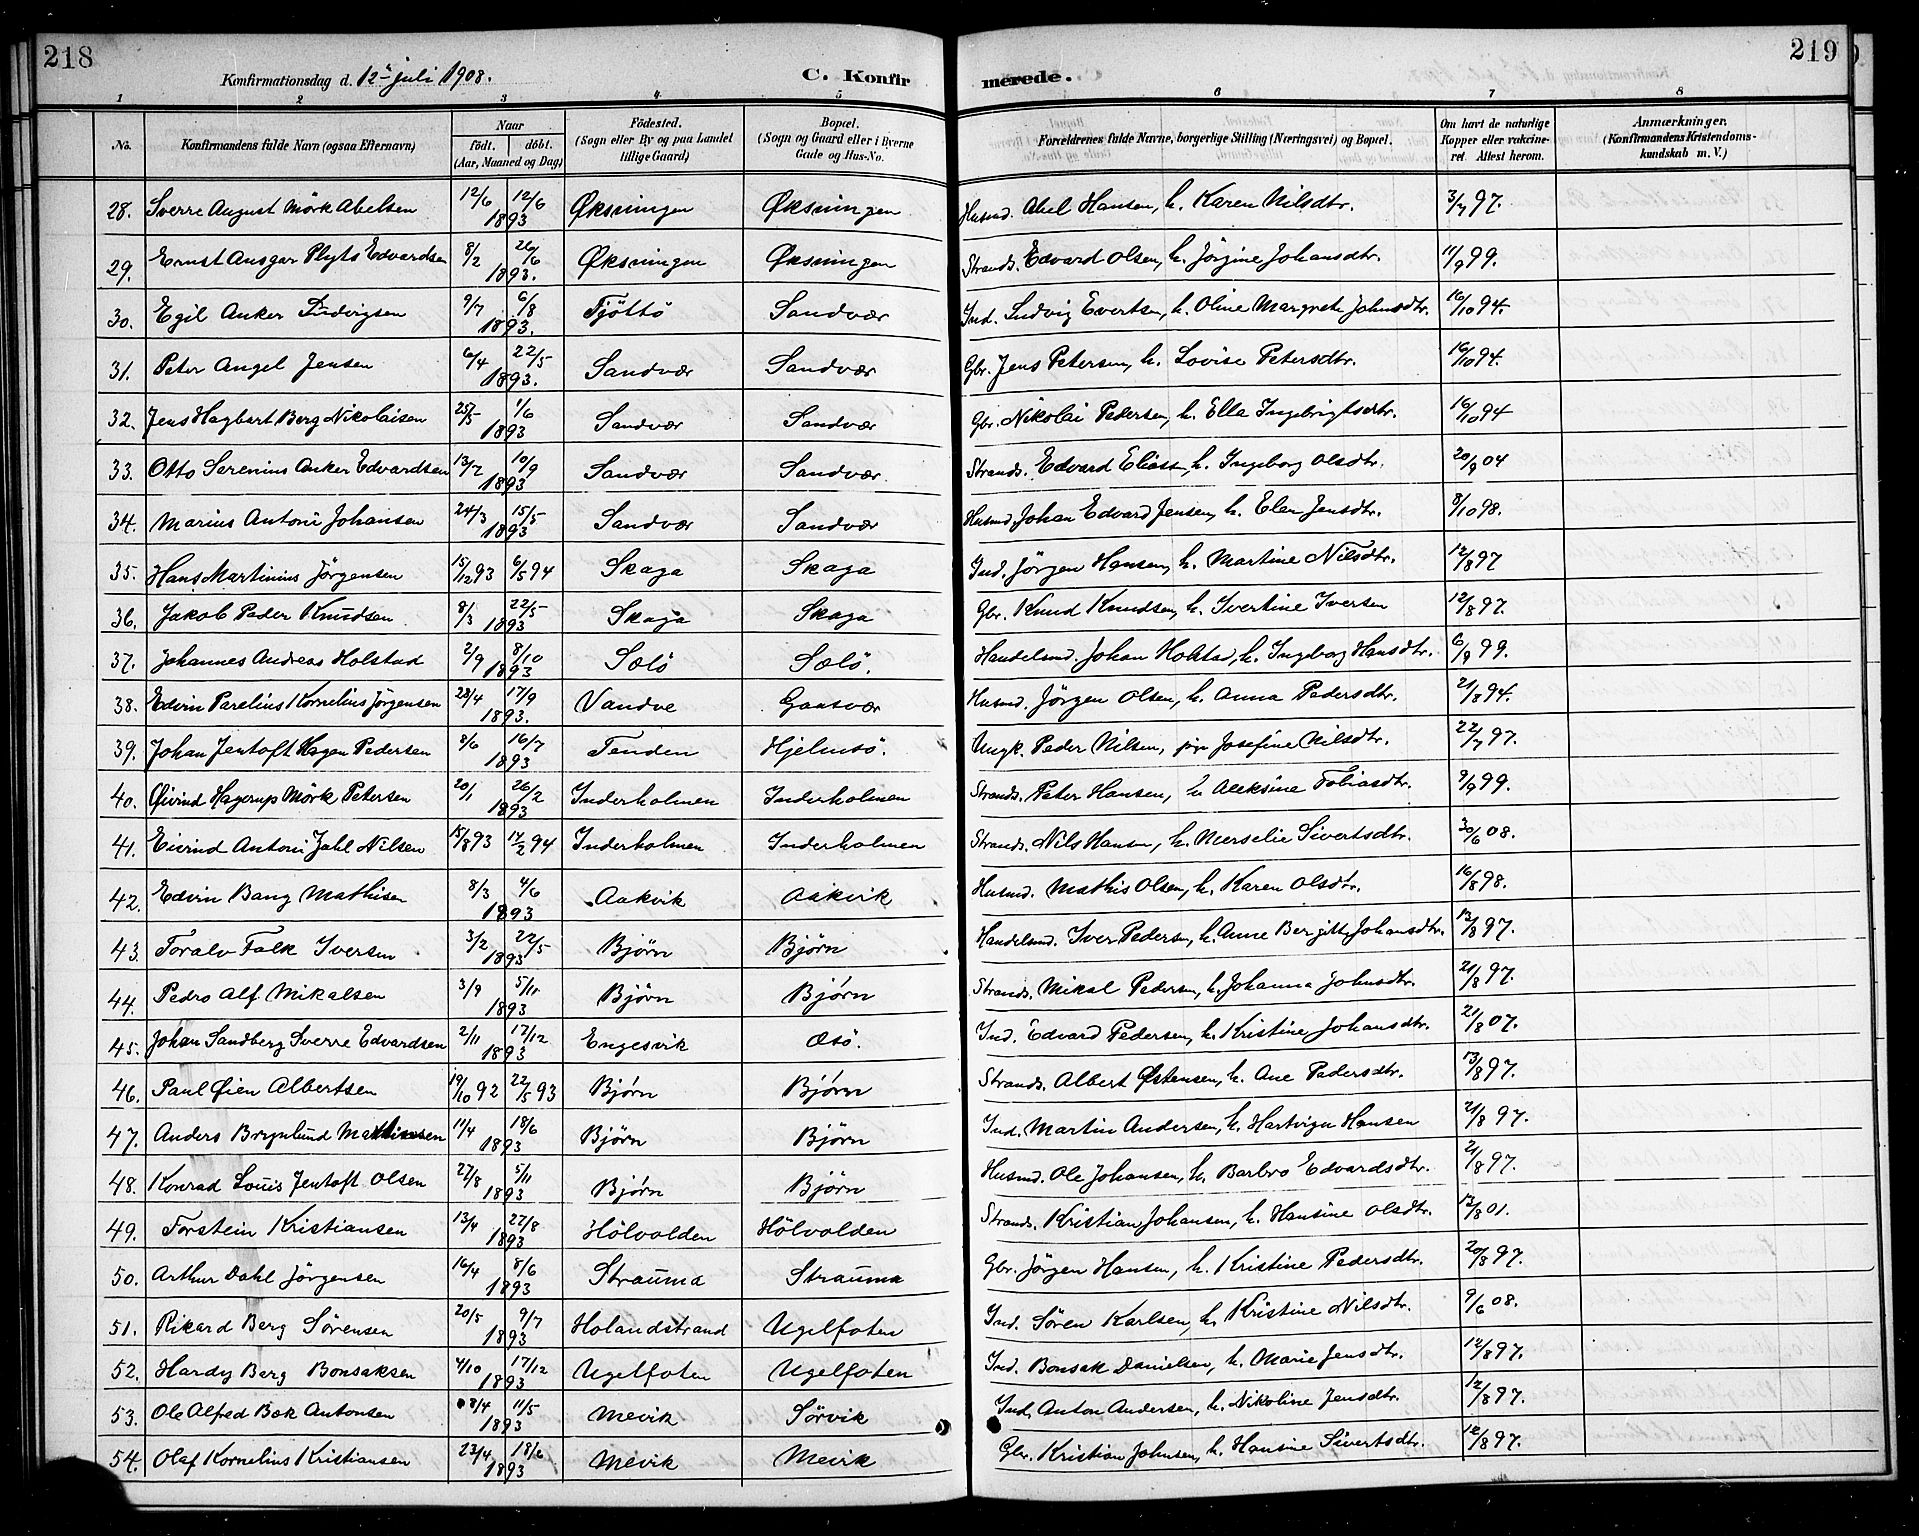 218
Konfirmationsdag d. 12te juli 1908.
C. Konfirmerede.
219
1 2 3 4 5 6 7 8
No. Konfirmandens fulde Navn (ogsaa Efternavn) Naar født. døbt. (Aar, Maaned og Dag) Födested. (Sogn eller By og paa Landet tillige Gaard) Bopæl. (Sogn og Gaard eller i Byerne Gade og Hus-No. Forældrenes fulde Navne, borgerlige Stilling (Næringsvei) og Bopæl. Om havt de naturlige Kopper eller vakcineret. Attest herom. Anmærkninger. (Konfirmandens Kristendomskundskab m. V.)
28. Sverre August Mörk Abelsen 12/6 12/6 1893 Øksningen Øksningen Husmd. Abel Hansen, h. Karen Nilsdtr. 3/7 97.
29. Ernst Ansgar Plyts Edvardsen 8/2 26/6 1893. Øksningen Øksningen Strands. Edvard Olsen, h. Jörgine Johansdtr. 11/9 99.
30. Egil Anker Ludvigsen 9/7 6/8 1893. Tjöttö Sandvær Ind. Ludvig Evertsen, h. Oline Margrete Johnsdtr. 16/10 94.
31. Peter Angel Jensen 6/4 22/5 1893. Sandvær Sandvær Gbr. Jens Petersen, h. Lovise Petersdtr. 16/10 94.
32. Jens Hagbart Berg Nikolaisen 25/5 1/6 1893 Sandvær Sandvær Gbr. Nikolai Pedersen, h. Ella Ingebrigtsdtr. 16/10 94
33. Otto Serenius Anker Edvardsen 13/7 10/9 1893 Sandvær Sandvær. Strands. Edvard Eliass., h. Ingeborg Olsdtr. 20/9 04
34. Marius Antoni Johansen 24/3 15/5 1893 Sandvær Sandvær Husmd. Johan Edvard Jensen, h. Elen Jensdtr. 8/10 98.
35. Hans Martinius Jörgensen 15/12 93 6/5 94 Skaga Skaga Ind. Jörgen Hansen, h. Martine Nilsdtr. 12/8 97
36. Jakob Peder Knudsen 8/3 22/5 1893 Skaga Skaga Gbr. Knud Knudsen, h. Ivertine Iversen 12/8 97.
37. Johannes Andreas Holstad 2/9 8/10 1893 Sælö Sælö. Handelsmd. Johan Holstad, h. Ingeborg Hansdtr. 6/9 99.
38. Edvin Parelius Kornelius Jörgensen 23/4 17/9 1893. Vandve Gaasvær Husmd. Jörgen Olsen, h. Anna Pedersdtr. 21/8 94.
39. Johan Jentoft Hagen Pedersen 8/6 16/7 1893 Tenden Hjelmsö. Ungk. Peder Nilsen, pige Josefine Nilsdtr. 22/7 97.
40. Øivind Hagerup Mörk Petersen 20/1 26/2 1893 Inderholmen Inderholmen Strands. Peter Hansen, h Aleksine Tobiasdtr. 9/9 99.
41. Eivind Antoni Jahl Nilsen 15/8 93 14/2 94 Inderholmen Inderholmen Strands. Nils Hansen, h. Merselie Sivertsdtr. 30/6 08.
42. Edvin Bang Mathisen 8/3 4/6 1893 Aakvik Aakvik Husmd. Mathis Olsen, h. Karen Olsdtr. 16/8 98.
43. Toralv Falk Iversen 3/2 22/5 1893 Bjørn Bjørn Handelsmd. Iver Pedersen, h. Anne Bergitte Johansdtr. 13/8 97.
44. Pedro Alf Mikalsen 3/9 5/11 1893 Bjørn Bjørn Strands. Mikal Pedersen, h. Johanna Johnsdtr. 21/8 97.
45. Johan Sandberg Sverre Edvardsen 2/11 17/12 1893 Engesvik Æsö. Ind. Edvard Pedersen, h. Kristine Johansdtr. 21/8 07.
46. Paul Øien Albertsen 19/10 92 22/5 93 Bjørn Bjørn Strands. Albert Østensen, h. Ane Pedersdtr. 13/8 97.
47. Anders Brynlund Mathisen 11/4 18/6 1893 Bjørn Bjørn Ind. Martin Andersen, h. Hartvigu Hansen 21/8 97.
48. Konrad Louis Jentoft Olsen 27/8 5/11 1893 Bjørn Bjørn Husmd. Ole Johansen, h. Barbro Edvardsdtr. 21/8 97.
49. Torstein Kristiansen 13/4 27/8 1893 Hölvolden Hölvolden Strands. Kristian Johansen, h. Hansine Olsdtr. 13/8 01.
50. Arthur Dahl Jörgensen 16/4 8/6 1893 Strauma Strauma Gbr. Jörgen Hansen, h. Kristine Pedersdtr. 20/8 97.
51. Rikard Berg Sörensen 20/5 9/7 1893 Holandstrand Ugelfoten Ind. Søren Karlsen, h. Kristine Nilsdtr. 9/6 08.
52. Hardy Berg Bonsaksen 4/10 17/12 1893 Ugelfoten Ugelfoten Ind. Bonsak Danielsen, h. Marie Jensdtr. 12/8 97.
53. Ole Alfred Bek Antonsen 8/4 11/5 1893 Mevik Sörvik Ind. Anton Andersen, h. Nikoline Jensdtr. 12/8 97.
54. Olaf Kornelius Kristiansen 23/4 18/6 1893 Mevik Mevik Gbr. Kristian Johnsen, h. Hansine Sivertsdtr. 12/8 97.